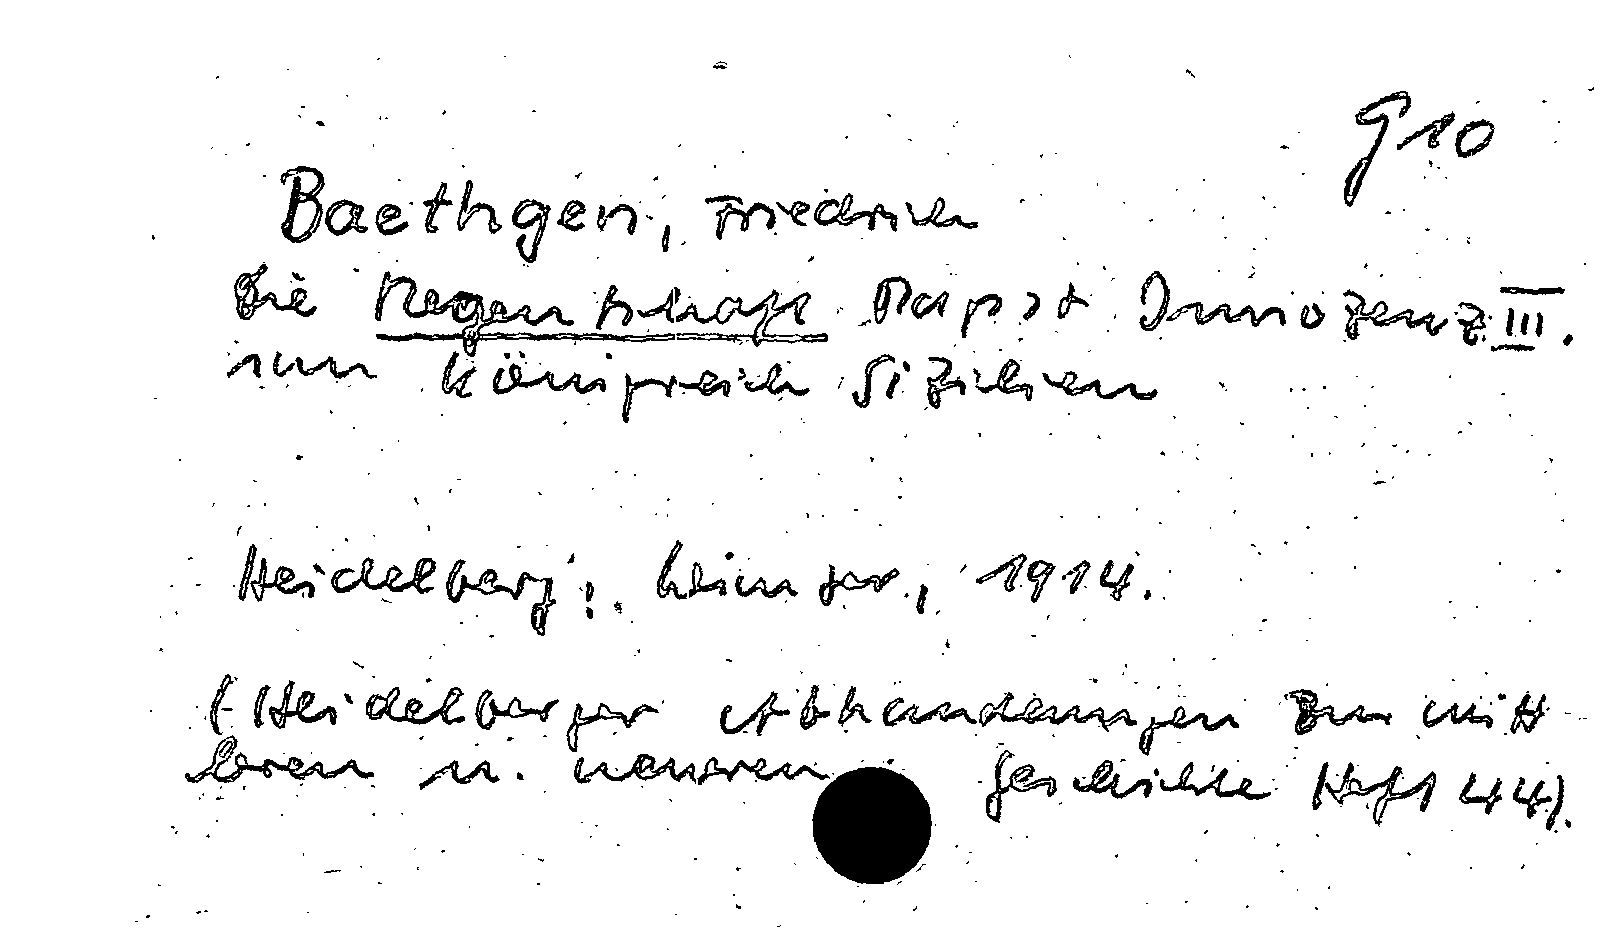 G 10
Baethgen, Friedrich
Die Regentschaft Papst Innozenz III.
im Königreich Sizilien
Heidelberg: Winter, 1914.
(Heidelberger Abhandlungen zur mitt
leren u. neueren Geschichte Heft 44).